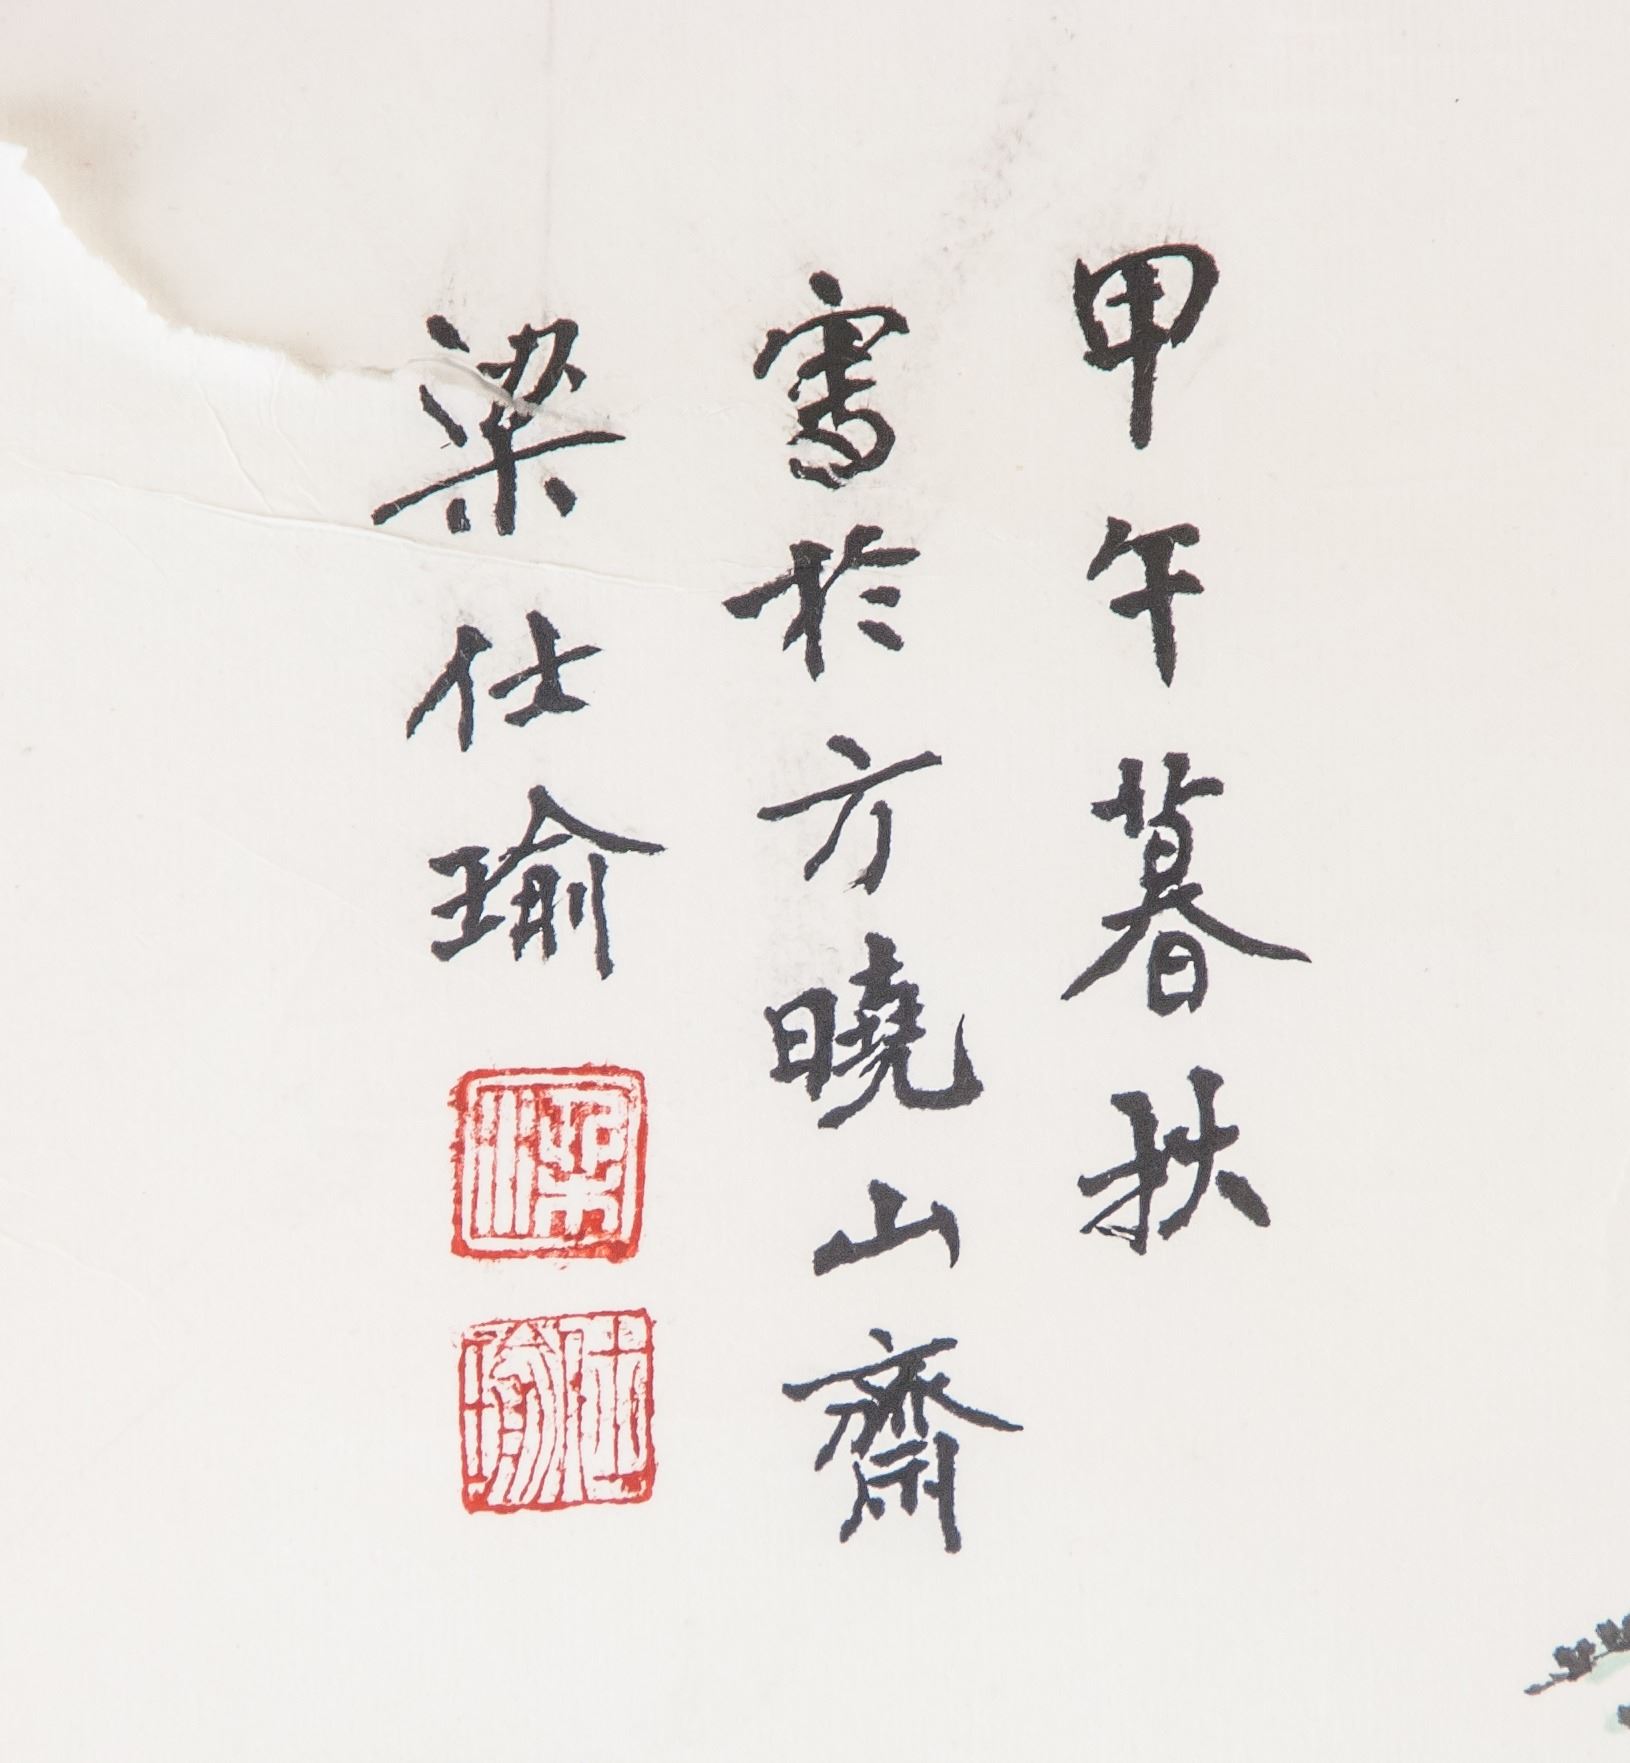 甲午暮秋
寫於方曉山齋
梁仕瑜
梁
仕瑜